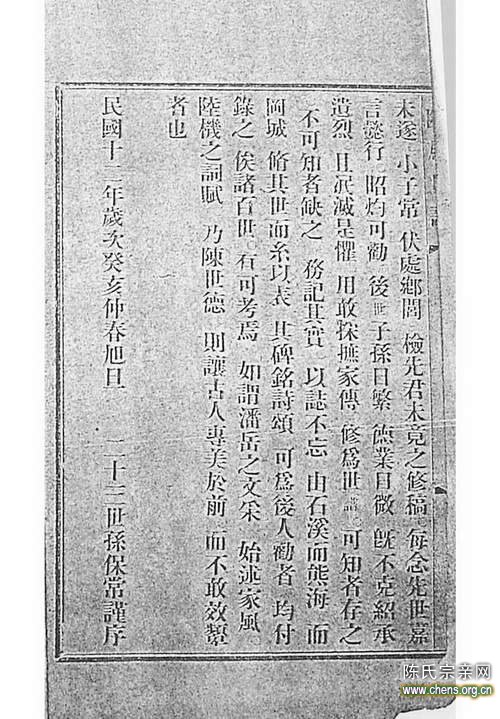 未遂 小子常 伏處鄉閭 檢先君未竟之修稿 每念先世嘉
言懿行 昭灼可勸 後世子孫日繁 德業日微 旣不克紹承
遺烈 且泯滅是懼 用敢採摭家傳 修爲世譜 可知者存之
不可知者缺之 務記其實 以誌不忘 由石溪而熊海 而
岡城 脩其世而系以表 其碑銘詩頌 可爲後人勸者 均付
錄之 俟諸百世 有可考焉 如謂潘岳之文采 始述家風
陸機之詞賦 乃陳世德 則讓古人專美於前 而不敢效顰
者也
民國十二年歲次癸亥仲春旭旦 二十三世孫保常謹序
陈氏宗亲网
www.chens.org.cn